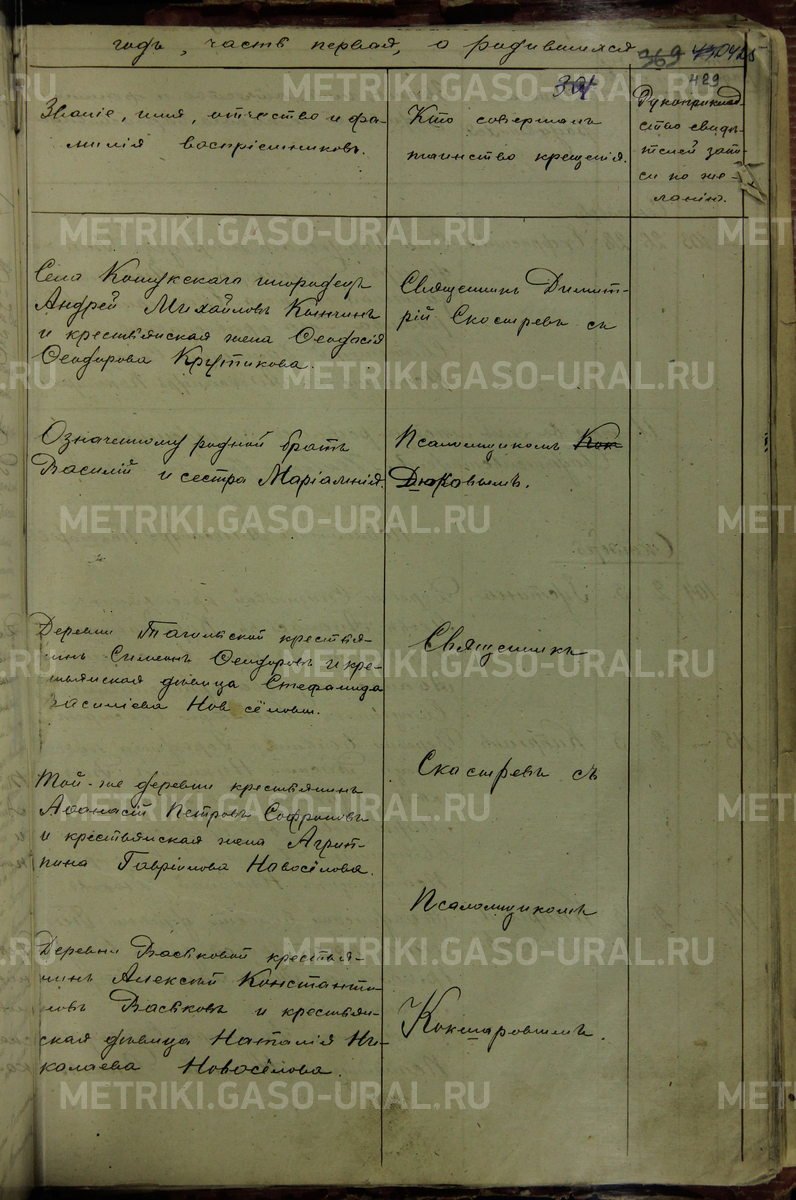 годъ, часть первая, о родившихся
369
429
Званіе, имя, отчество и фа-
милія воспріемниковъ.
Кто совершалъ
таинство крещенія.
Рукоприклад
ство свидѣ-
телей запи-
си по же-
ланію.
Села Кошукскаго инородецъ
Андрей Михайловъ
и крестьянская жена Ѳеодосія
Ѳеодорова Крутикова.
Священникъ Димит-
рій Скосыревъ съ
Означенному родной братъ
Василій и сестра Маріамнія.
Псаломщикомъ Кок-
Дюковымъ.
Деревни Тагильской крестья-
нинъ Симеонъ Ѳеодоровъ и кре-
стьянская дѣвица Стефанида
Василіева Новосёловы.
Священникъ
Той-же деревни крестьянинъ
Аѳанасій Петровъ Софроновъ
и крестьянская жена Агрип-
пина Гавріилова Новосёлова.
Скосыревъ съ
Псаломщикомъ
Деревни Васьковой крестья-
нинъ Алексѣй Константи-
новъ Васьковъ и крестьян-
ская дѣвица Наталія Ни-
колаева Новосёлова.
Кокшаровымъ.
METRIKI.GASO-URAL.RU